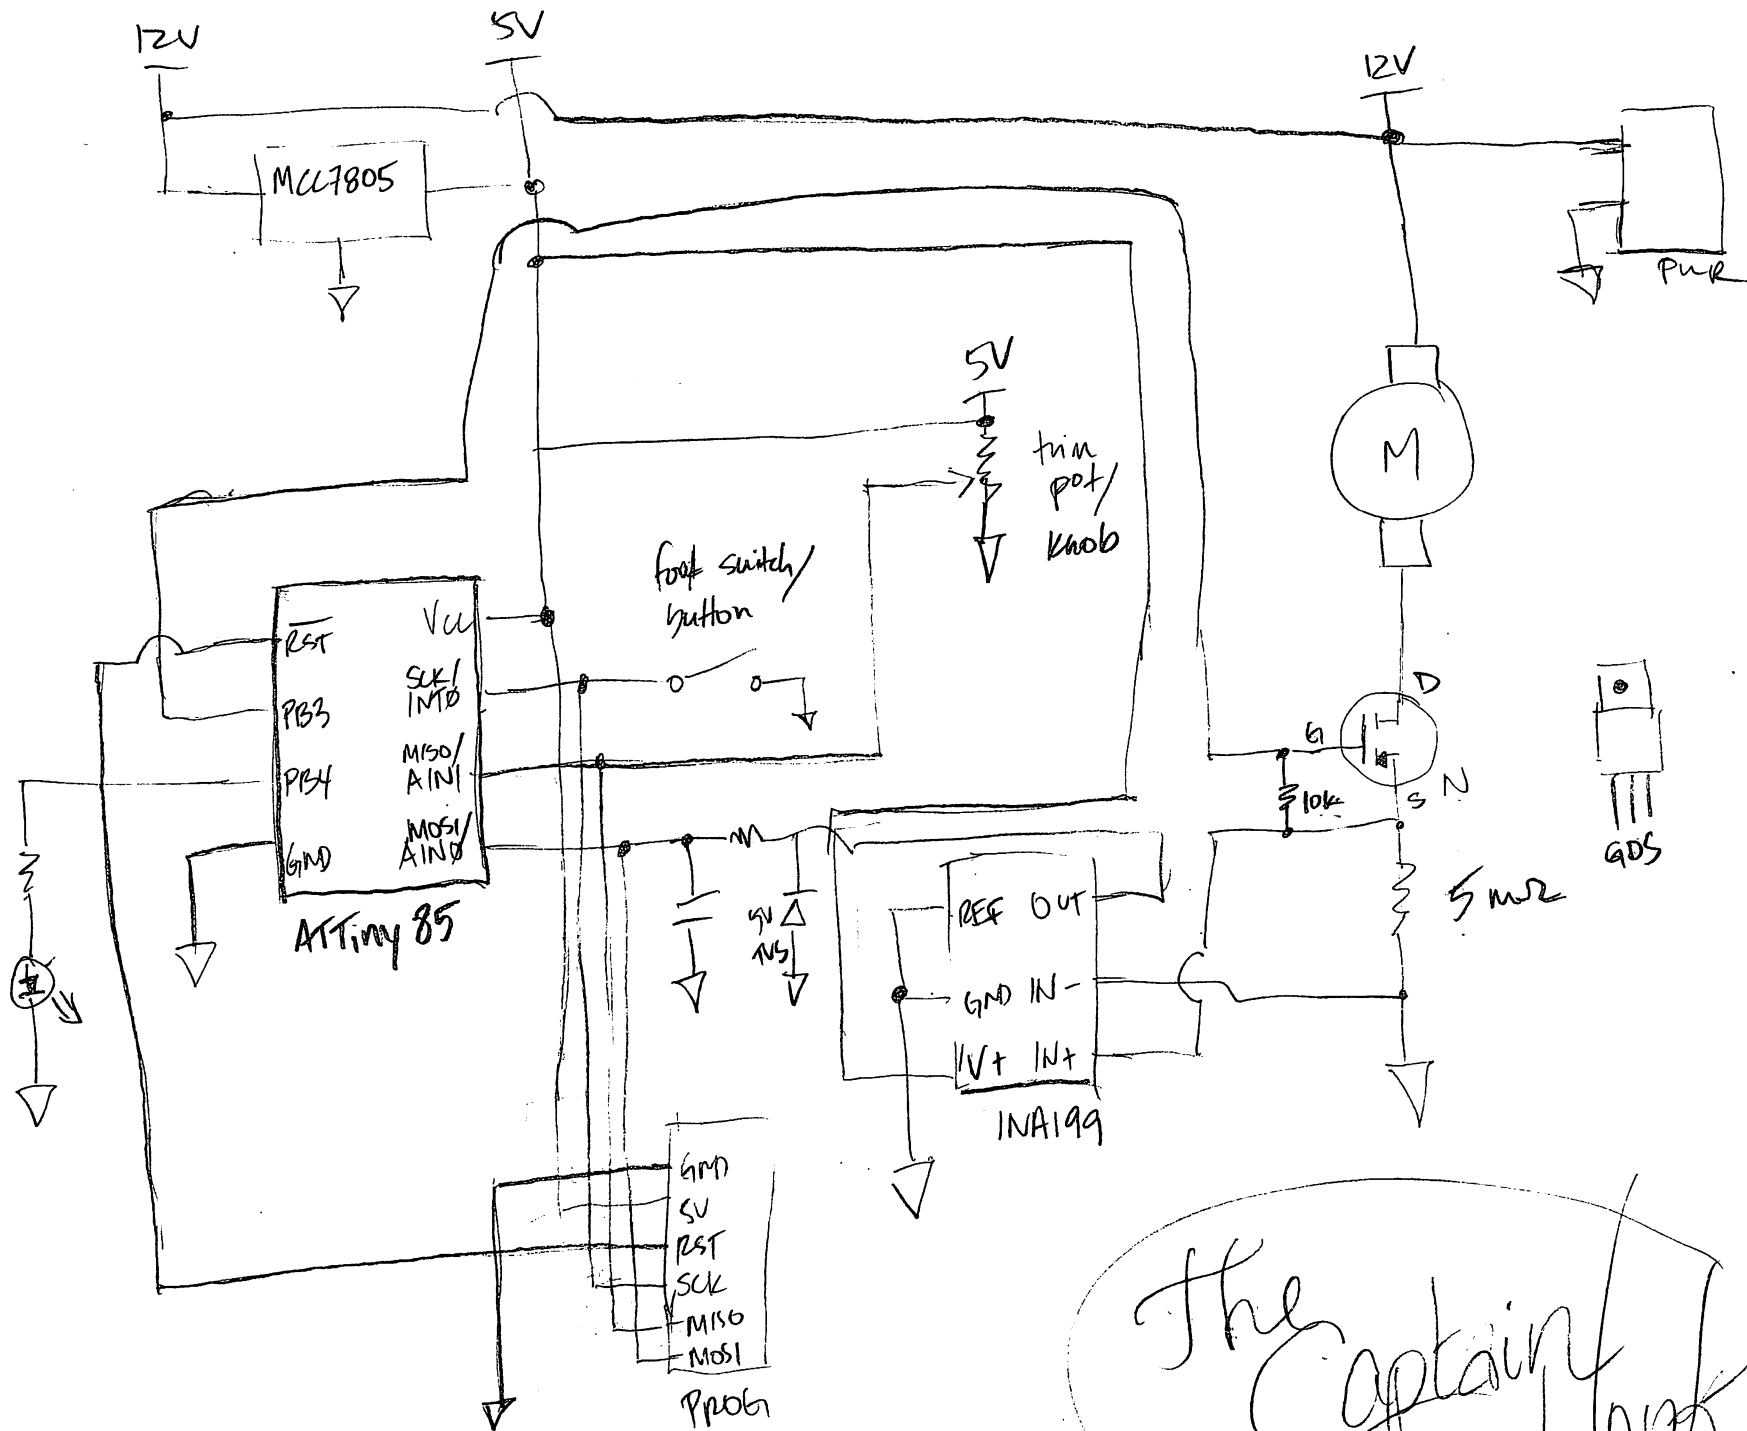 12V
5V
12V
MCC7805
PWR
5V
trim
pot/
knob
foot switch/
button
M
RST
VCC
SCK/
INT0
PB3
MISO/
AIN1
PB4
MOSI/
AIN0
GND
ATTiny 85
5V
TVS
D
G
S
N
10K
5mΩ
GDS
REF OUT
GND IN-
V+ IN+
INA199
GND
5V
RST
SCK
MISO
MOSI
PROG
The
Captain